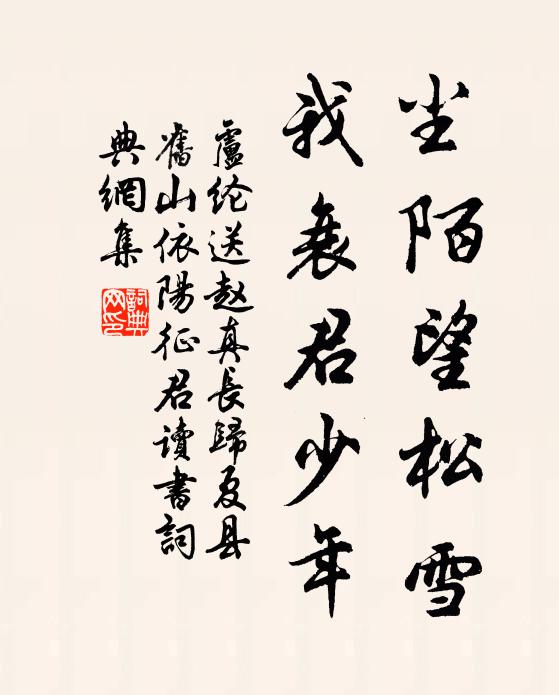 尘陌望松雪
我衰君少年
盧纶送赵真長歸夏县
舊山依陽征君讀書詞
典網集
詞典
网印